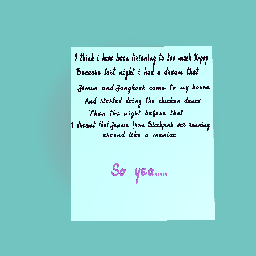 I think i have been listening to too much Kpop
Because last night i had a dream that
Jimin and Jungkook came to my house
And started doing the chicken dance
Then the night before that
I dreamt that Jennie from blackpink was running
around like a maniac
So yea.....